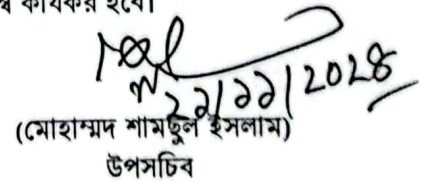 কার্যকর হবে।
২১/১১/২০২৪
(মোহাম্মদ শামছুল ইসলাম)
উপসচিব